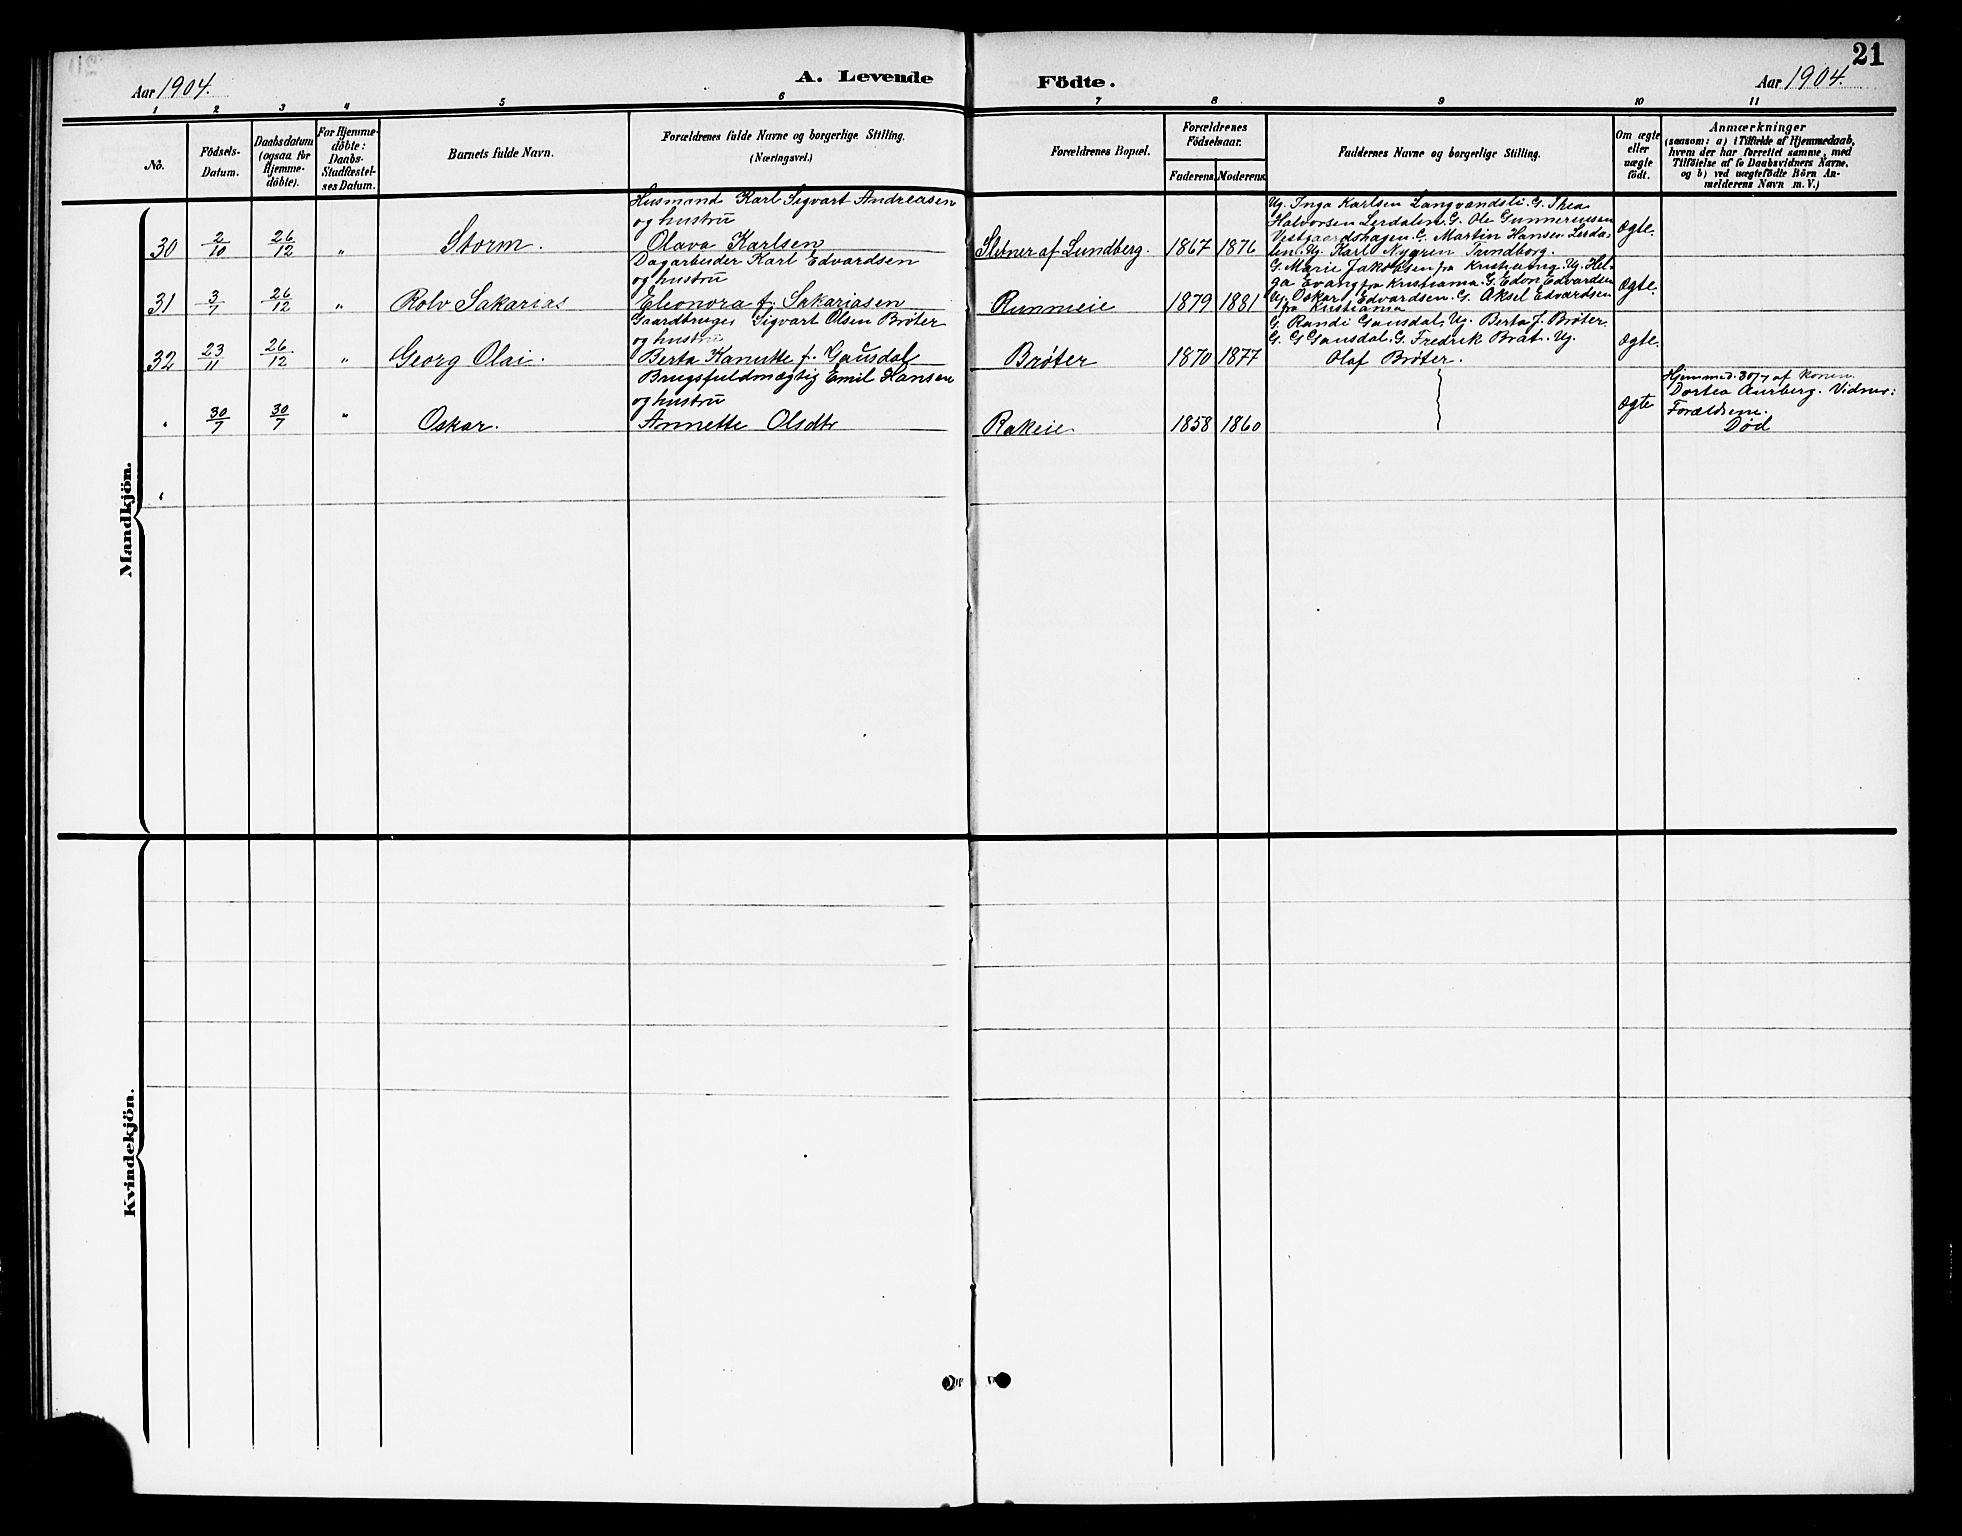 21
Aar 1904.
A. Levende Födte.
Aar 1904.
1 2 3 4 5 6 7 8 9 10 11
No.
Födsels-
Datum.
Daabsdatum
(ogsaa for
Hjemme-
döbte).
For Hjemme-
döbte:
Daabs-
Stadfæstel-
ses Datum.
Barnets fulde Navn.
Forældrenes fulde Navne og borgerlige Stilling.
(Næringsvei.)
Forældrenes Bopæl.
Forældrenes
Födselsaar.
Faderens. Moderens.
Faddernes Navne og borgerlige Stilling.
Om ægte
eller
uægte
födt.
Anmærkninger
(saasom: a) i Tilfælde af Hjemmedaab,
hvem der har forrettet samme, med
Tilföielse af to Daabsvidners Navne.
og b) ved uægtefödte Börn An-
melderens Navn m. V.)
Mandkjön.
30 2/10 26/12 " Storm.
Husmand Karl Sigvart Andreasen
og hustru
Olava Karlsen
Sletner af Lundberg. 1867 1876
Ug. Inga Karlsen Langvandsli. G. Thea
Halvorsen Lerdalen. G. Ole Gunnerusen
Vestgaardshagen. G. Martin Hansen Lerda-
len. Ug. Karl Nygren Tundborg.
Ægte.
31 3/7 26/12 " Rolv Sakarias
Dagarbeider Karl Edvardsen
og hustru
Eleonora f. Sakariasen
Rummeie 1879 1881
G. Marie Jakobsen fra Kristiania. Ug. Hel-
ga Evang fra Kristiania. G. Edvr Edvardsen
Ug. Oskar Edvardsen. G. Aksel Edvardsen
fra Kristiania
Ægte.
32 23/11 26/12 " Georg Olai.
Gaardbruger Sigvart Olsen Brøter
og hustru
Berta Kanutte f. Gausdal
Brøter 1870 1877
G. Randi Gausdal, Ug. Berta J. Brøter
G. G Gausdal. G. Fredrik Brat. Ug.
Olaf Brøter.
Ægte.
" 30/7 30/7 " Oskar.
Brugsfuldmægtig Emil Hansen
og hustru
Annette Olsdtr
Rakeie 1858 1860
Ægte
Hjemmed. 30/7 af konen
Dortea Aurberg. Vidner:
Forældrene.
Død
"
Kvindekjön.